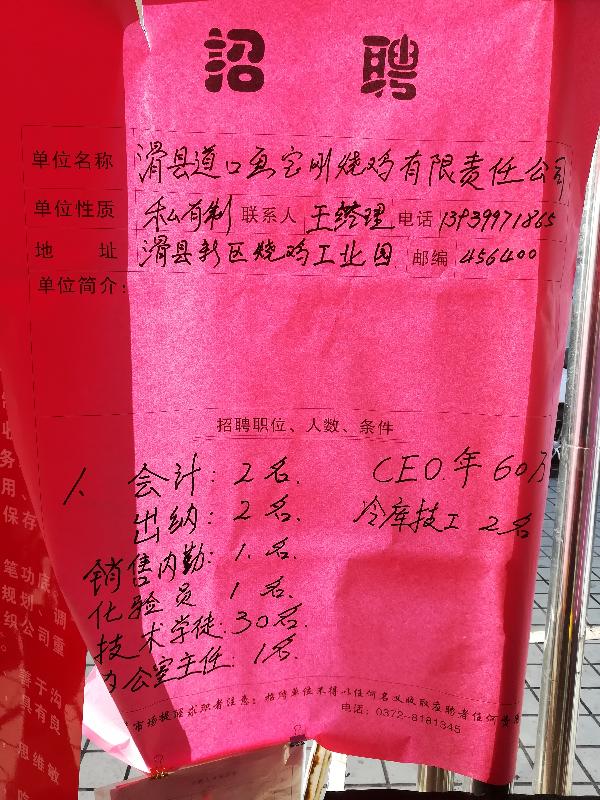 招 聘
单位名称 滑县道口画宝刚烧鸡有限责任公司
单位性质 私有制 联系人 王经理 电话 13939971865
地 址 滑县新区烧鸡工业园 邮编 456400
单位简介：
招聘职位、人数、条件
人 会计：2名. CEO.年60万
出纳：2名. 冷库技工 2名
销售内勤：1.名.
化验员 1名.
技术学徒：30名.
办公室主任：1名.
市场提醒求职者注意：招聘单位不得以任何名义收取应聘者任何
电话：0372--8181345
务
用、
保存
笔功底
规划 调
织公司重
善于沟
具有良
思维敏